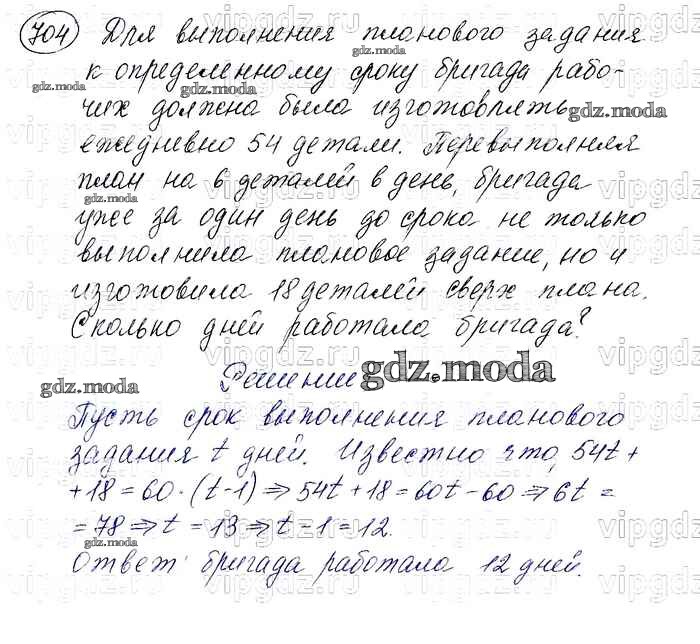 704 Для выполнения планового задания
к определенному сроку бригада рабо-
чих должна была изготовлять
ежедневно 54 детали. Перевыполняя
план на 6 деталей в день, бригада
уже за один день до срока не только
выполнила плановое задание, но и
изготовила 18 деталей сверх плана.
Сколько дней работала бригада?
Решение
Пусть срок выполнения планового
задания t дней. Известно что, 54t +
+18 = 60 · (t-1) ⇒ 54t + 18 = 60t - 60 ⇒ 6t =
= 78 ⇒ t = 13 ⇒ t - 1 = 12.
Ответ: бригада работала 12 дней.
gdz.moda
gdz.moda
gdz.moda
gdz.moda
gdz.moda
gdz.moda
gdz.moda
gdz.moda